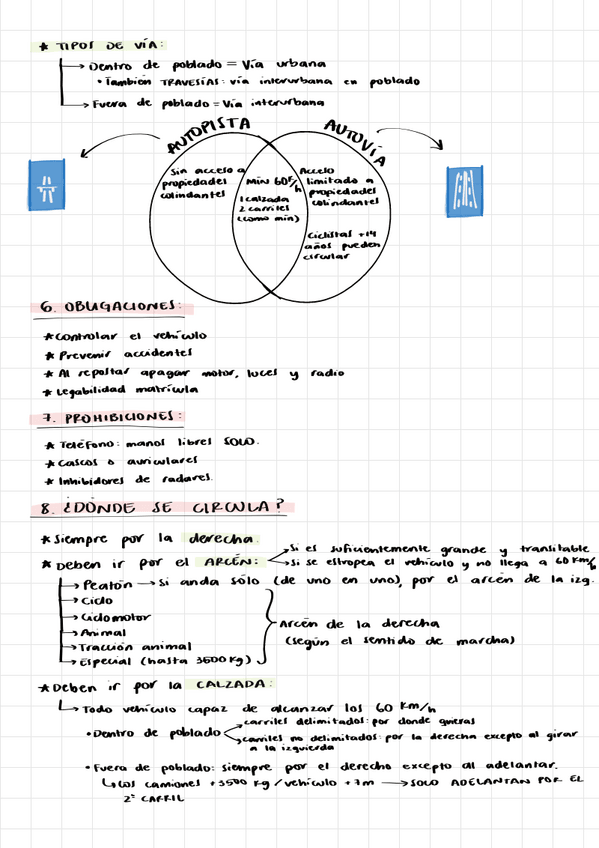 * TIPOS DE VÍA:
→ Dentro de poblado = Vía urbana
• También TRAVESÍAS: vía interurbana en poblado
→ Fuera de poblado = Vía interurbana
AUTOPISTA
AUTOVÍA
Sin acceso a
propiedades
colindantes
MIN 60 K/h
1 calzada
2 carriles
(como min)
Acceso
limitado a
propiedades
colindantes
Ciclistas +14
años pueden
circular
6. OBLIGACIONES:
* Controlar el vehículo
* Prevenir accidentes
* Al repostar apagar motor, luces y radio
* Legabilidad matrícula
7. PROHIBICIONES:
* Teléfono: manos libres SOLO.
* Cascos o auriculares
* Inhibidores de radares.
8. ¿DÓNDE SE CIRCULA?
* Siempre por la derecha.
* Deben ir por el ARCÉN:
→ Si es suficientemente grande y transitable
→ Si se estropea el vehículo y no llega a 60 km/h
→ Peatón → Si anda sólo (de uno en uno), por el arcén de la izq.
→ Ciclo
→ Ciclomotor
→ Animal
→ Tracción animal
→ Especial (hasta 3500 kg)
Arcén de la derecha
(según el sentido de marcha)
* Deben ir por la CALZADA:
↳ Todo vehículo capaz de alcanzar los 60 km/h
• Dentro de poblado
→ carriles delimitados: por donde quieras
→ carriles no delimitados: por la derecha excepto al girar
a la izquierda
• Fuera de poblado: siempre por el derecho excepto al adelantar.
↳ Los camiones +3500 kg / vehículo +7m → SOLO ADELANTAN POR EL
2º CARRIL